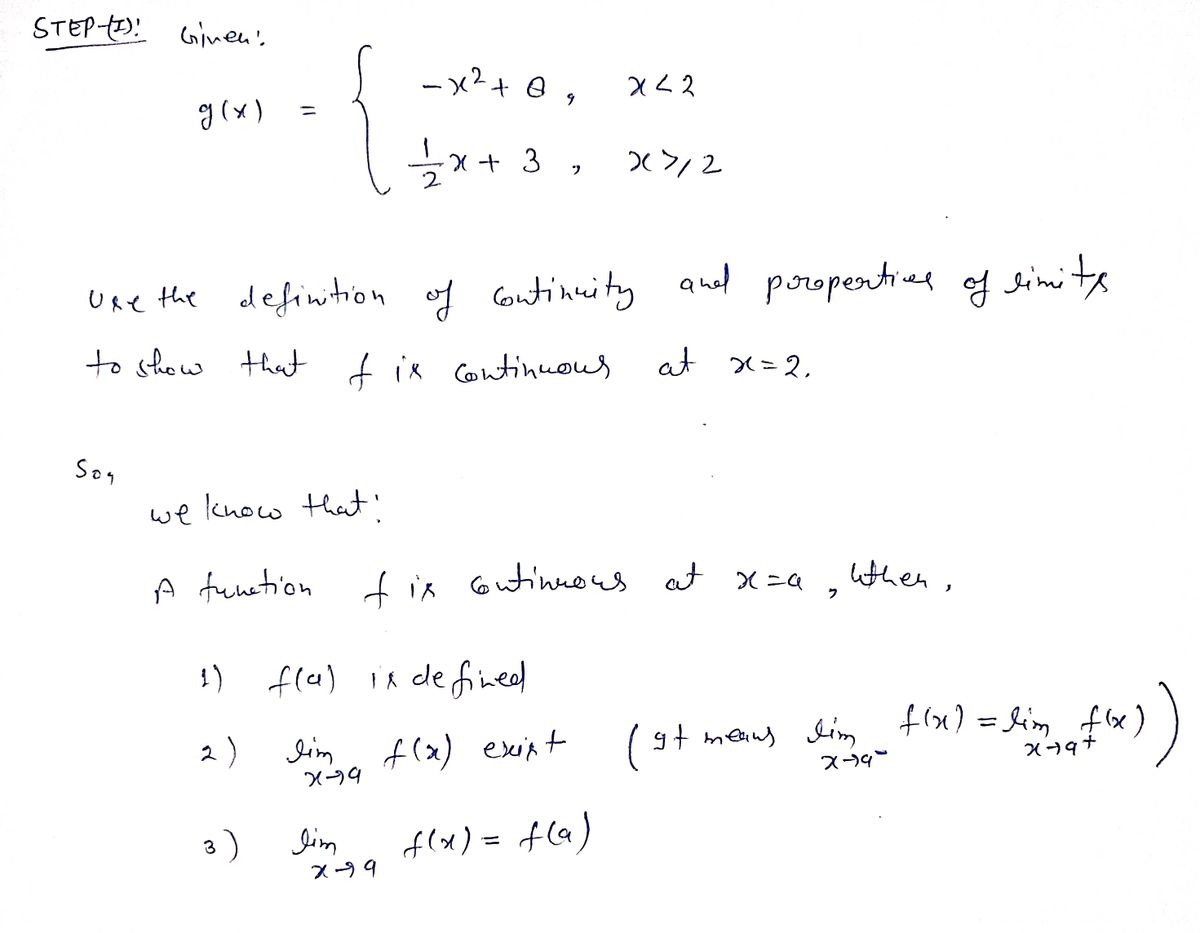 STEP-(I):  Given:
g(x) = { -x² + θ , x < 2
1/2 x + 3 , x ≥ 2
Use the definition of continuity and properties of limits
to show that f is continuous at x=2.
So,
we know that:
A function f is continuous at x=a , when ,
1) f(a) is defined
2) lim x→a f(x) exist ( It means lim x→a⁻ f(x) = lim x→a⁺ f(x) )
3) lim x→a f(x) = f(a)